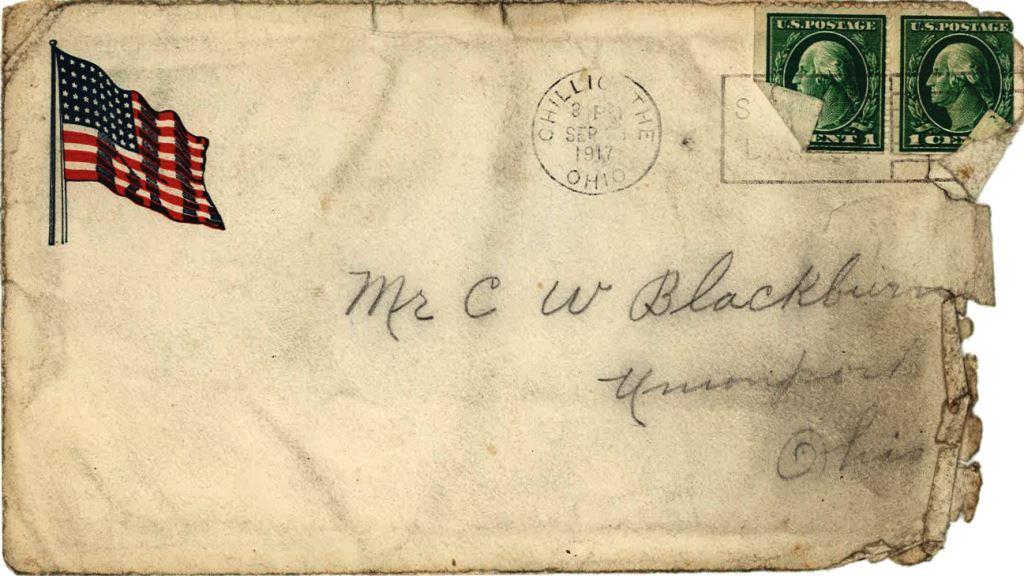 U.S. POSTAGE U.S. POSTAGE
CENT 1 1 CE
CHILLICOTHE
8 PM
SEP
1917
OHIO
S
Mr C W Blackburn
Unionport
Ohio